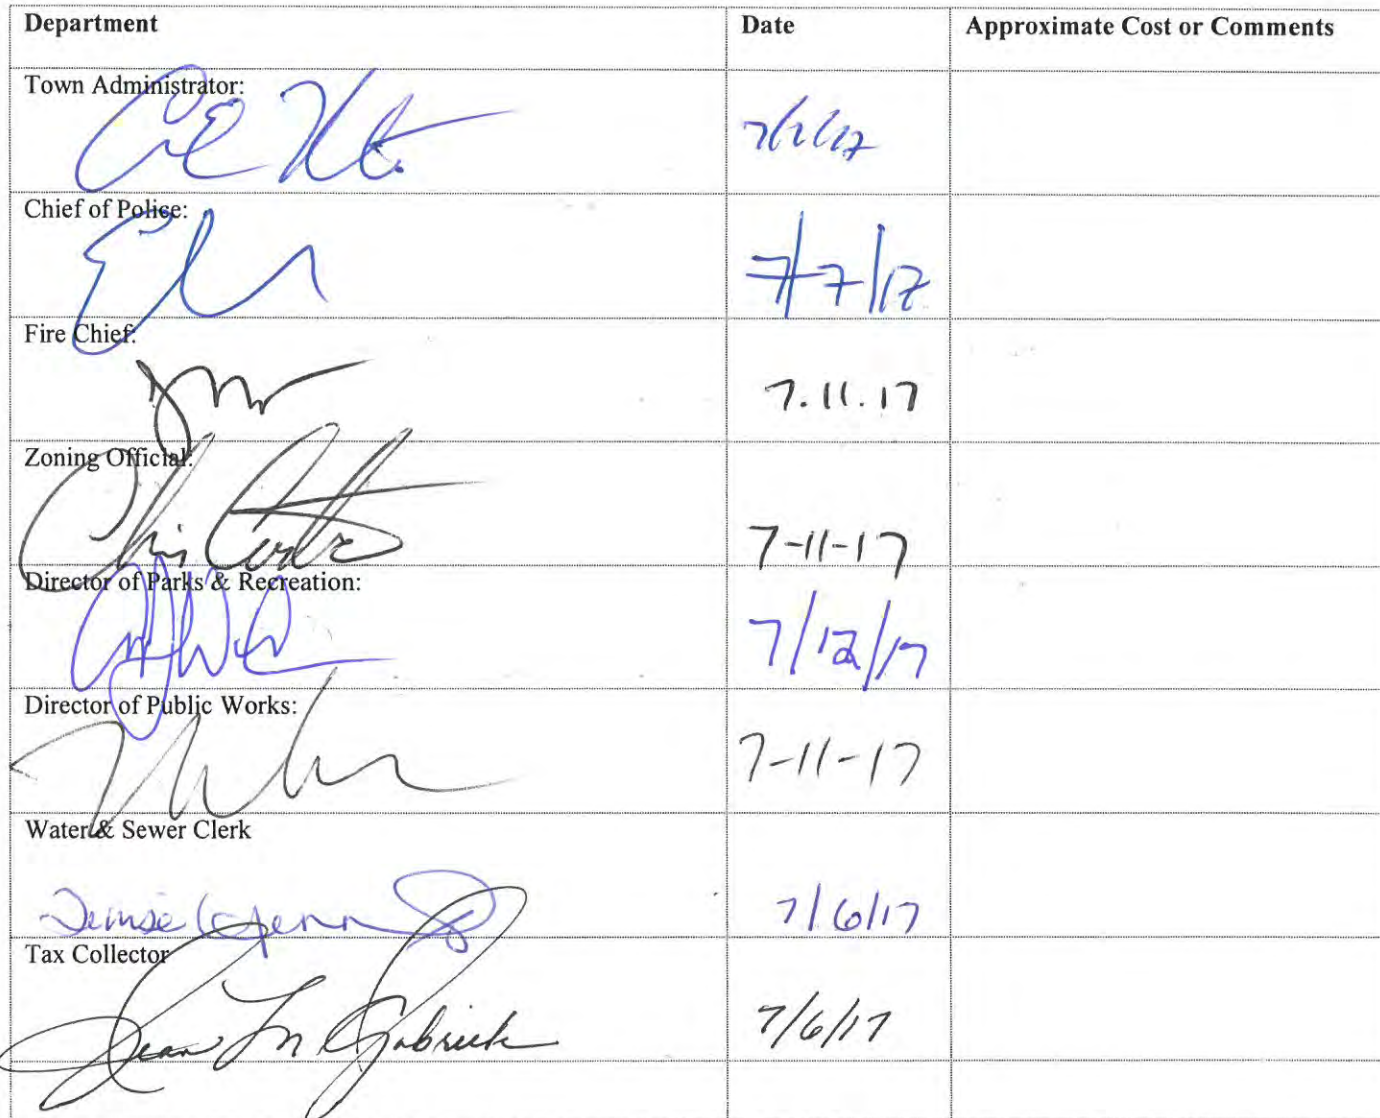 Department Date Approximate Cost or Comments
Town Administrator:
Chief of Police:
7/7/17
Fire Chief:
7.11.17
Zoning Official:
7-11-17
Director of Parks & Recreation:
7/12/17
Director of Public Works:
7-11-17
Water & Sewer Clerk
Denise 7/6/17
Tax Collector
Jean M Gabriele 7/6/17